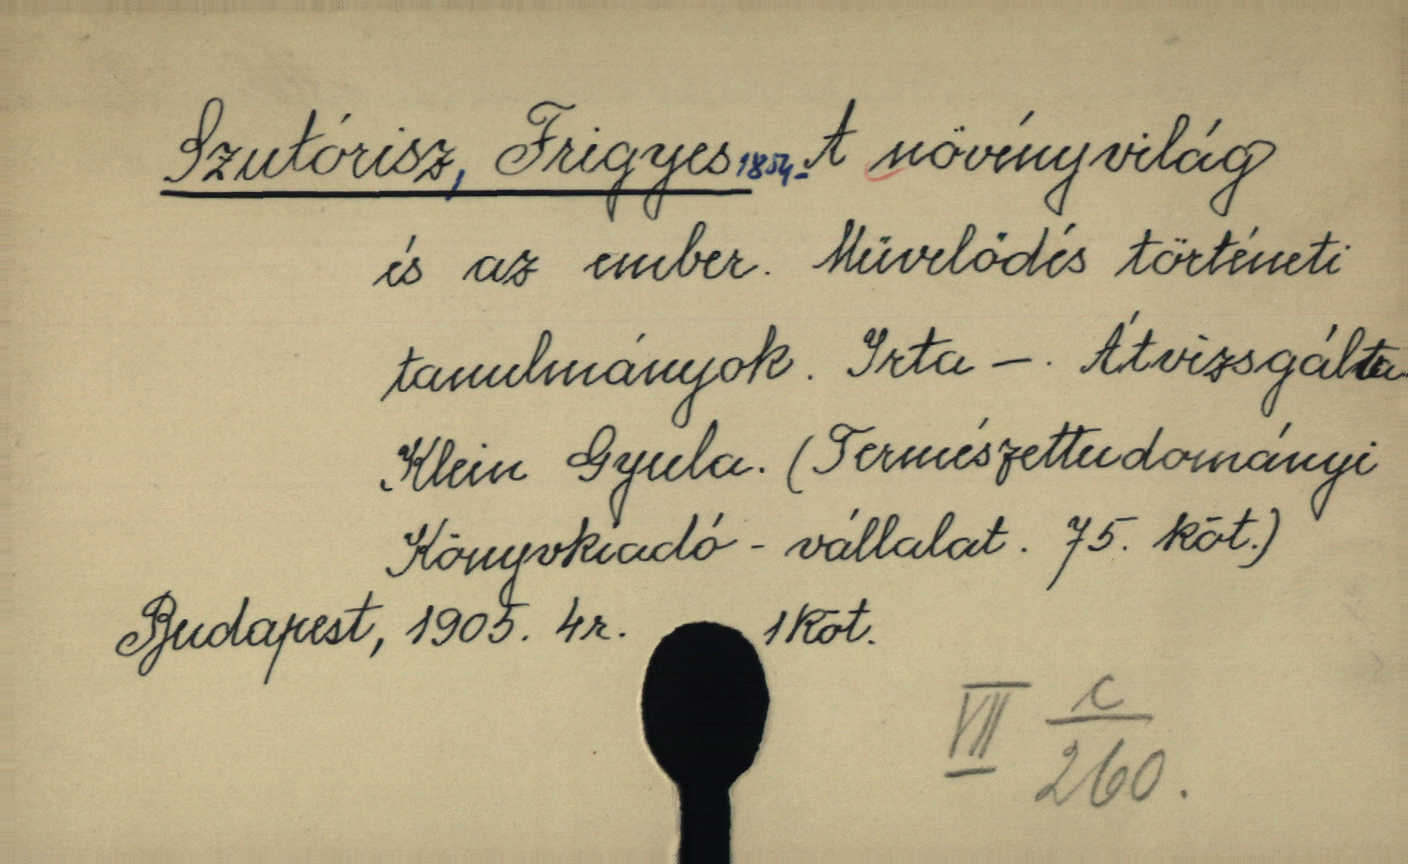 Szutórisz, Frigyes 1854- A növényvilág
és az ember. Müvelődés történeti
tanulmányok. Irta —. Átvizsgálta
Klein Gyula. (Természettudományi
Könyvkiadó - vállalat. 75. köt.)
Budapest, 1905. 4r. 1 Köt.
VII c/260.